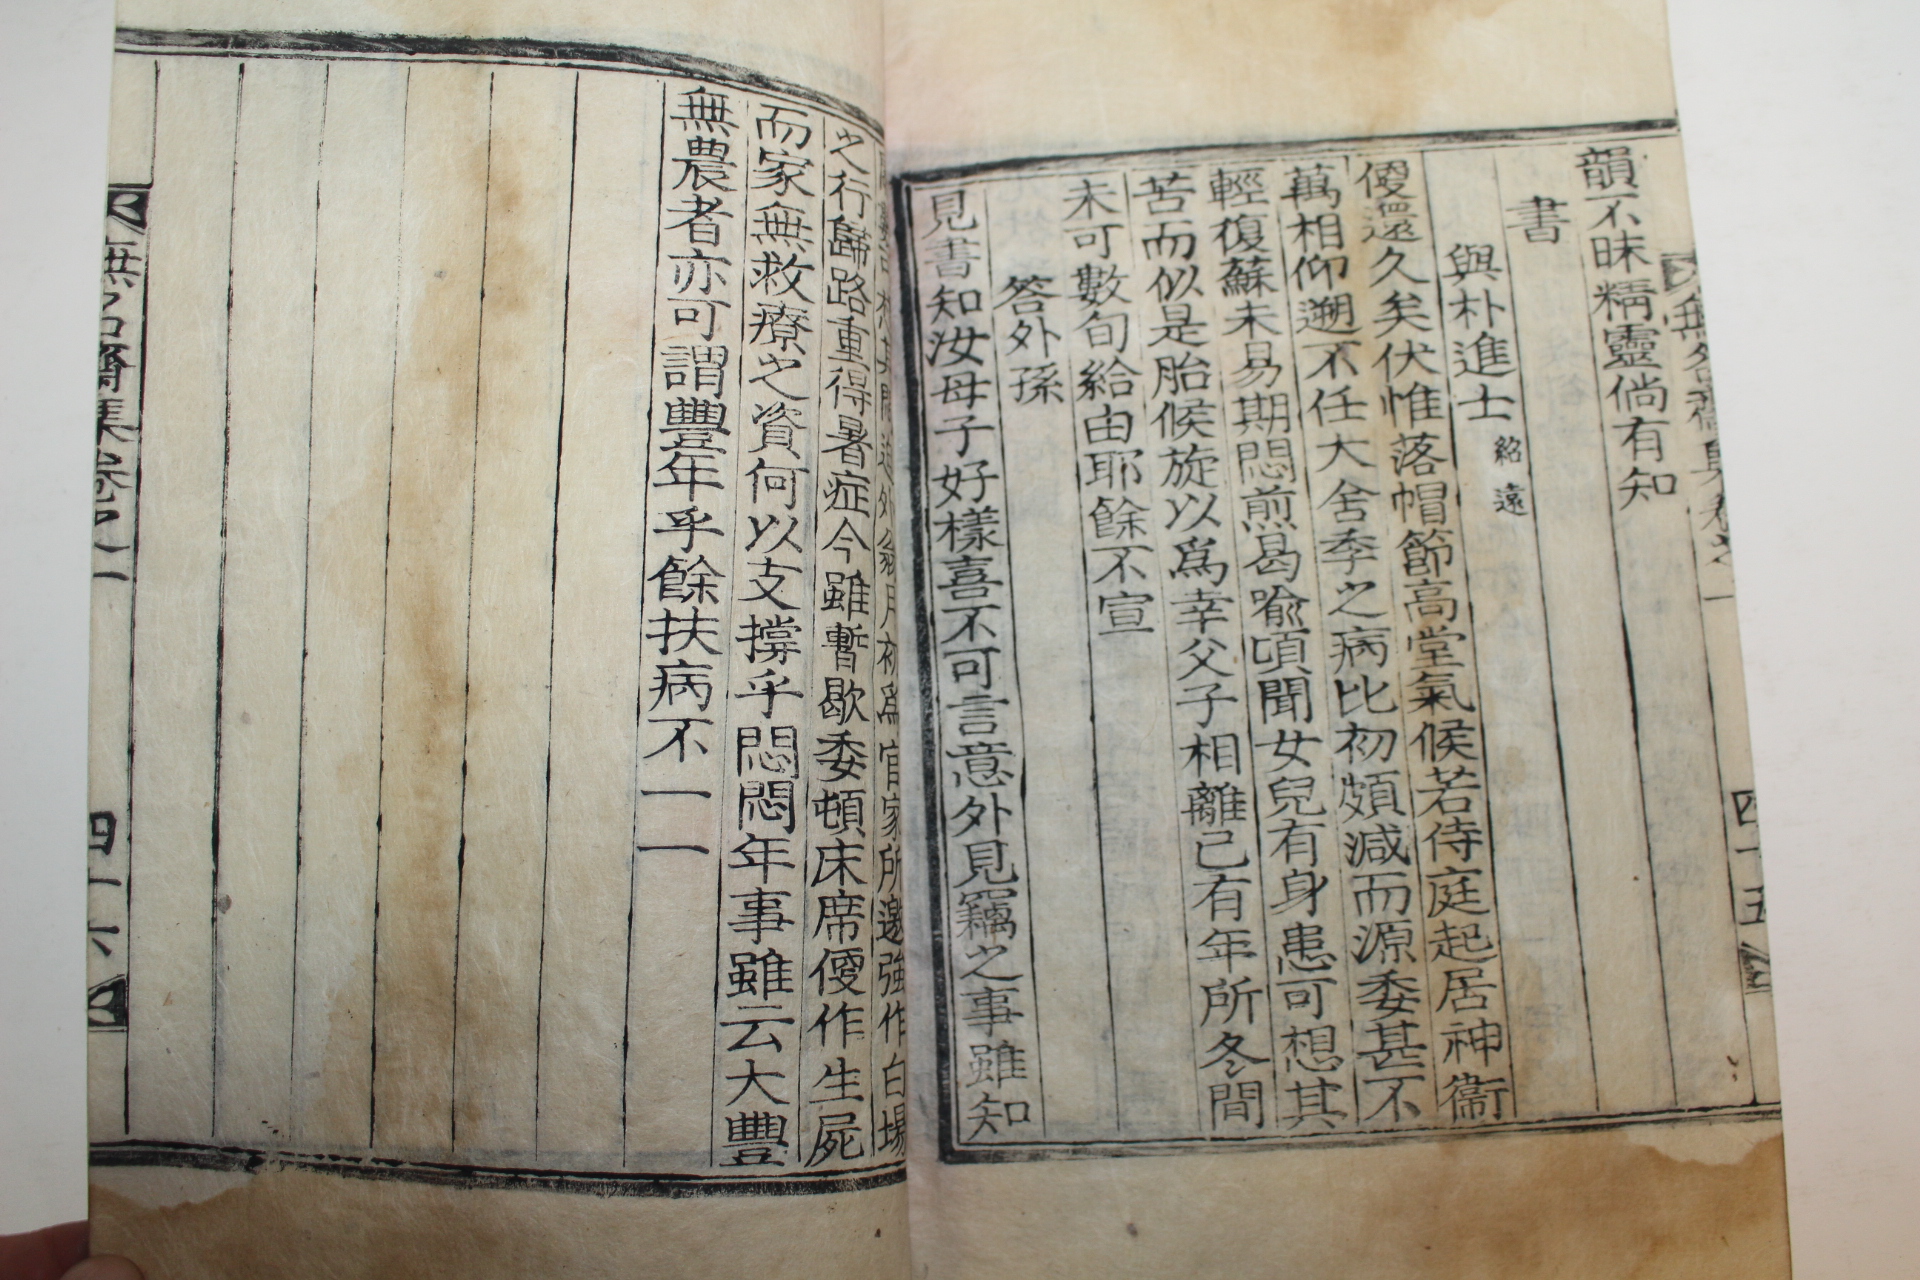 無名齋集卷之一
四十五
韻不昧精靈倘有知
書
與朴進士紹遠
僾違久矣伏惟落帽節高堂氣候若侍庭起居神衛
萬相仰遡不任大舍季之病比初頗减而源委甚不
輕復蘇未易期悶煎曷喩頃聞女兒有身患可想其
苦而似是胎候旋以爲幸父子相離已有年所冬間
未可數旬給由耶餘不宣
答外孫
見書知汝母子好樣喜不可言意外見竊之事雖知
其間迨外翁月初爲官家所邀強作白場
之行歸路重得暑症今雖暫歇委頓床席便作生屍
而家無救療之資何以支撐乎悶悶年事雖云大豐
無農者亦可謂豐年乎餘扶病不一一
無名齋集卷之一
四十六